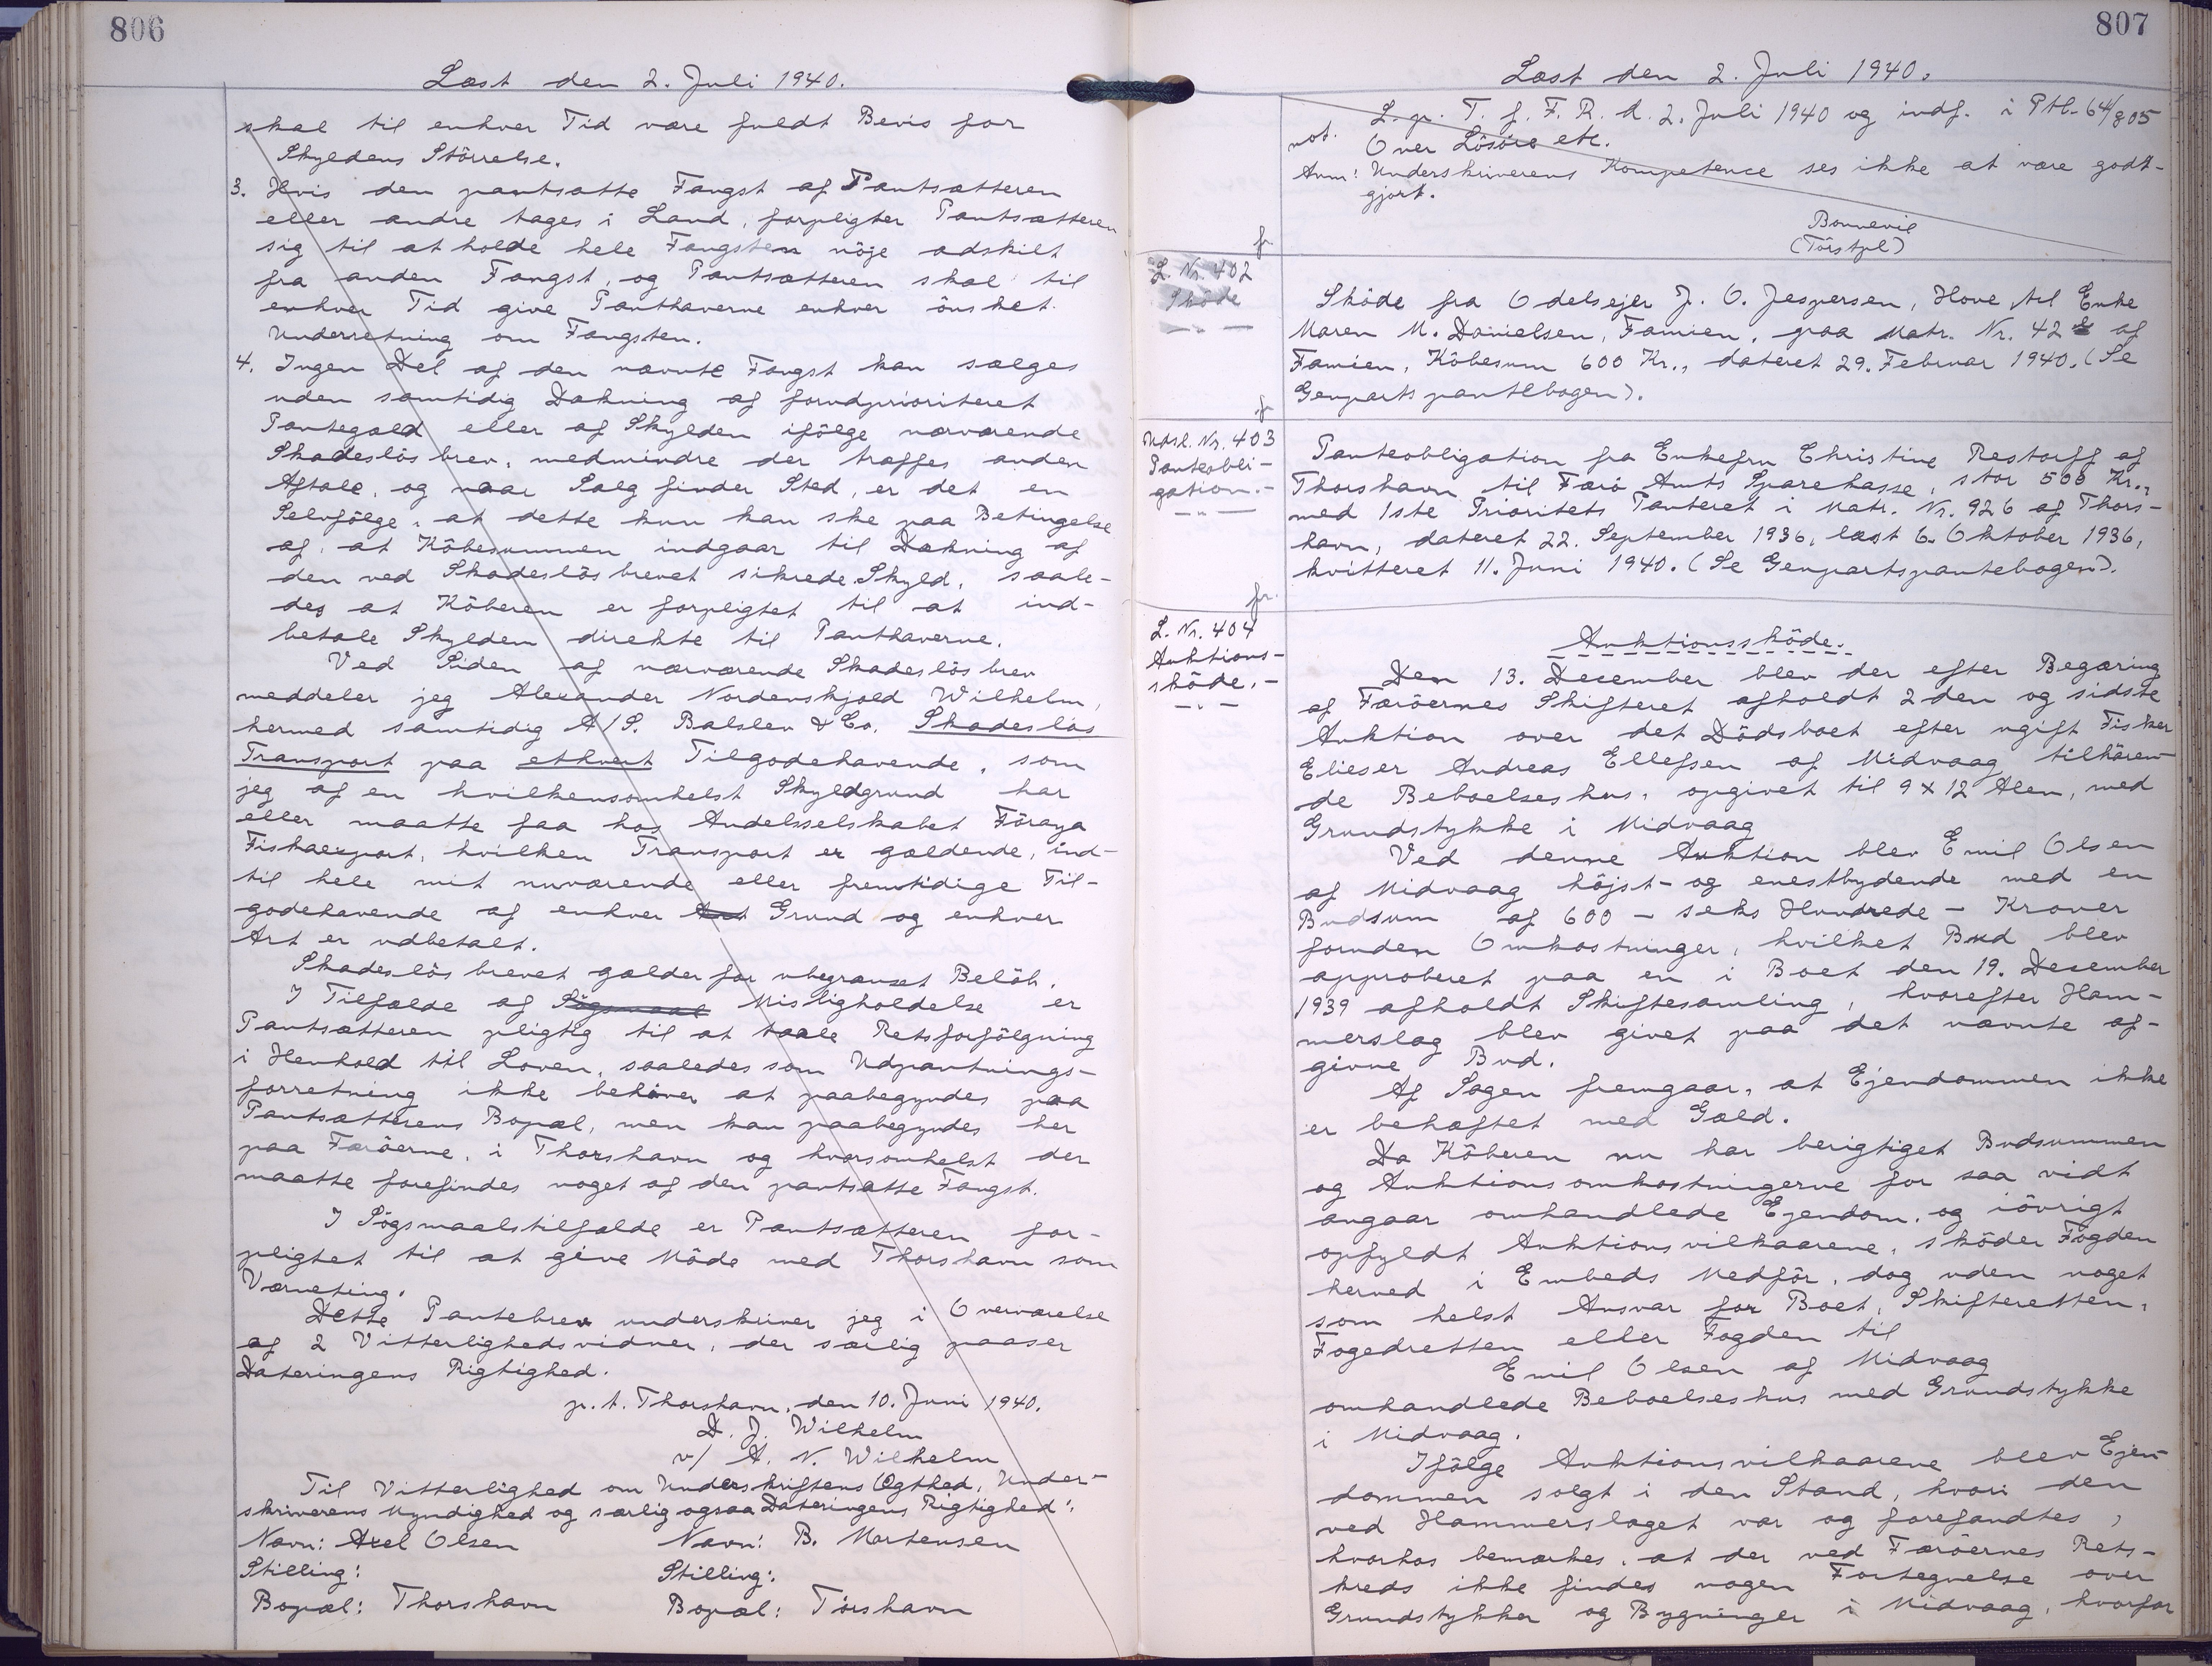 806
Læst den 2. Juli 1940.
skal til enhver Tid være fuldt Bevis for
Skyldens Störrelse.
3. Hvis den pantsatte Fangst af Pantsætteren
eller andre tages i Land, forpligter Pantsætteren
sig til at holde hele Fangsten nöje adskilt
fra anden Fangst, og Pantsætteren skal til
enhver Tid give Panthaverne enhver önsket
Underretning om Fangsten.
4. Ingen Del af den nævnte Fangst kan sælges
uden samtidig Dækning af forudprioriteret
Pantegæld eller af Skylden ifölge nærværende
Skadeslösbrev, medmindre der træffes anden
Aftale, og naar Salg finder Sted, er det en
Selvfölge, at dette kun kan ske paa Betingelse
af, at Köbesummen indgaar til Dækning af
den ved Skadeslösbrevet sikrede Skyld, saale-
des at Köberen er forpligtet til at ind-
betale Skylden direkte til Panthaverne.
Ved Siden af nærværende Skadeslösbrev
meddeler jeg Alexander Nordenskjold Wilhelm,
hermed samtidig A/S. Balslev & Co. Skadeslös
Transport paa ethvert Tilgodehavende, som
jeg af en hvilkensomhelst Skyldgrund har
eller maatte faa hos Andelsselskabet Föroya
Fiskaexport, hvilken Transport er gældende, ind-
til hele mit nuværende eller fremtidige Til-
godehavende af enhver Art Grund og enhver
Art er udbetalt.
Skadeslösbrevet gælder for ubegrænset Belöb.
I Tilfælde af Sögsmaal Misligholdelse er
Pantsætteren pligtig til at taale Retsforfölgning
i Henhold til Loven, saaledes som Udpantnings-
forretning ikke behöver at paabegyndes paa
Pantsætterens Bopæl, men kan paabegyndes her
paa Færöerne, i Thorshavn og hvorsomhelst der
maatte forefindes noget af den pantsatte Fangst.
I Sögsmaalstilfælde er Pantsætteren for-
pligtet til at give Möde med Thorshavn som
Værneting.
Dette Pantebrev underskriver jeg i Overværelse
af 2 Vitterlighedsvidner, der særlig paaser
Dateringens Rigtighed.
p.t. Thorshavn, den 10. Juni 1940.
D. J. Wilhelm
v/ A. N. Wilhelm
Til Vitterlighed om Underskriftens Ægthed, Under-
skriverens Myndighed og særlig ogsaa Dateringens Rigtighed:
Navn: Axel Olsen Navn: B. Mortensen
Stilling: Stilling:
Bopæl: Thorshavn Bopæl: Tórshavn
807
Læst den 2. Juli 1940.
L. p. T. f. F. R. d. 2. Juli 1940 og indf. i Ptb. 64/805
not. Over Lösöre etc.
Anm: Underskriverens Kompetence ses ikke at være godt-
gjort.
Bonnevie
(Tórstpl)
fr
L. Nr. 402
Sköde
Sköde fra Odelsejer J. O. Jespersen, Hove, til Enke
Maren M. Danielsen, Famien, paa Matr. Nr. 42 af
Famien, Köbesum 600 Kr., dateret 29. Februar 1940. (Se
Genpartspantebogen).
fr
Udsl. Nr. 403
Panteobli-
gation.-
Panteobligation fra Enkefru Christine Restorff af
Thorshavn til Færö Amts Sparekasse, stor 500 Kr.,
med 1ste Prioritets Panteret i Matr. Nr. 926 af Thors-
havn, dateret 22. September 1936, læst 6. Oktober 1936,
kvitteret 11. Juni 1940. (Se Genpartspantebogen).
fr.
L. Nr. 404
Auktions-
sköde.-
Auktionssköde.
Den 13. December blev der efter Begæring
af Færöernes Skifteret afholdt 2den og sidste
Auktion over det Dödsboet efter ugift Fisker
Elieser Andreas Ellefsen af Midvaag tilhören-
de Beboelseshus, opgivet til 9 x 12 Alen, med
Grundstykke i Midvaag
Ved denne Auktion blev Emil Olsen
af Midvaag höjst- og enestbydende med en
Budsum af 600 - seks Hundrede - Kroner
foruden Omkostninger, hvilket Bud blev
approberet paa en i Boet den 19. December
1939 afholdt Skiftesamling, hvorefter Ham-
merslag blev givet paa det nævnte af-
givne Bud.
Af Sagen fremgaar, at Ejendommen ikke
er behæftet med Gæld.
Da Köberen nu har berigtiget Budsummen
og Auktionsomkostningerne for saa vidt
angaar omhandlede Ejendom, og iövrigt
opfyldt Auktionsvilkaarene, sköder Fogden
herved i Embeds Medför, dog uden noget
som helst Ansvar for Boet, Skifteretten,
Fogedretten eller Fogden til
Emil Olsen af Midvaag
omhandlede Beboelseshus med Grundstykke
i Midvaag.
Ifölge Auktionsvilkaarene blev Ejen-
dommen solgt i den Stand, hvori den
ved Hammerslaget var og forefandtes,
hvorhos bemærkes, at der ved Færöernes Rets-
kreds ikke findes nogen Fortegnelse over
Grundstykker og Bygninger i Midvaag, hvorfor